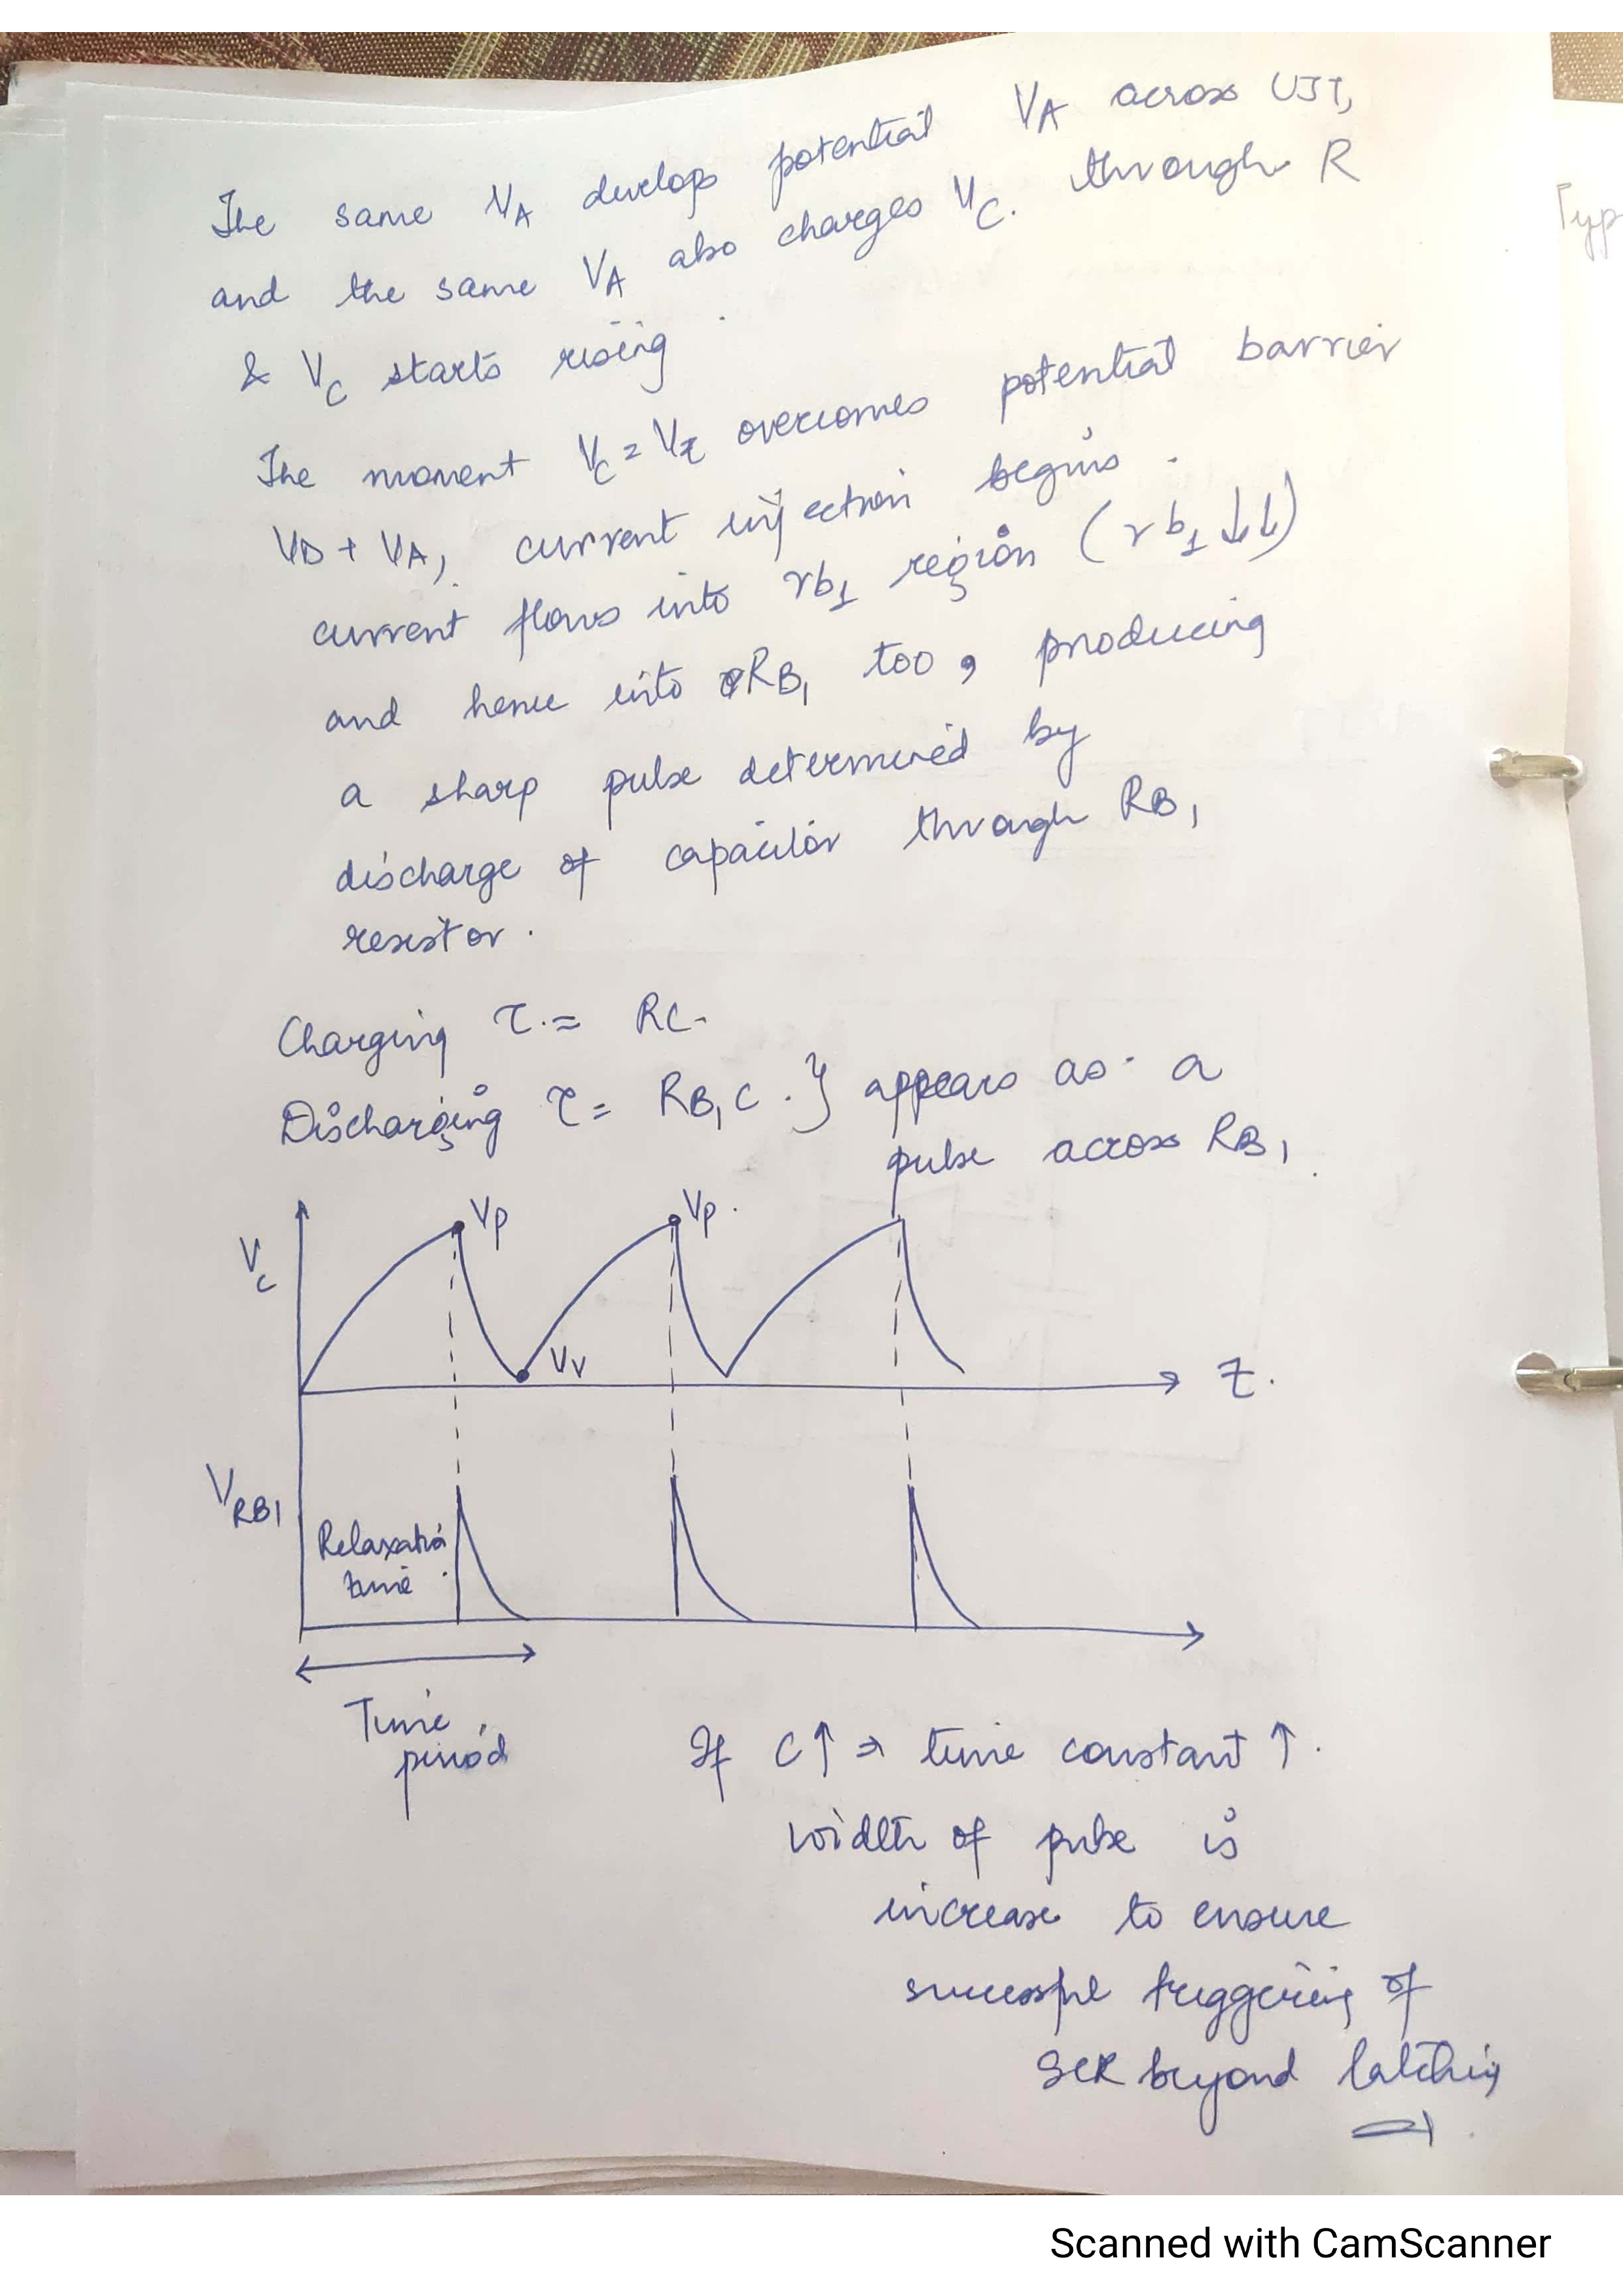 The same VA develops potential VA across UJT,
and the same VA also charges VC. through R
& VC starts rising
The moment VC = VE overcomes potential barrier
VD + VA, current injection begins.
current flows into rb1 region (rb1 ↓↓)
and hence into RB1 too, producing
a sharp pulse determined by
discharge of capacitor through RB1
resistor.
Charging τ = RC.
Discharging τ = RB1C. } appears as a
pulse across RB1
VC
Vp
Vp.
Vv
t.
VRB1
Relaxation
time
Time
period
If C↑ ⇒ time constant ↑.
width of pulse is
increase to ensure
successful triggering of
SCR beyond latching
Typ
Scanned with CamScanner